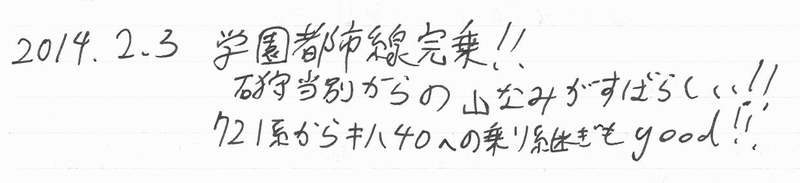 2014.2.3 学園都市線完乗!!
石狩当別からの山なみがすばらしい!!
721系からキハ40への乗り継ぎもgood!!